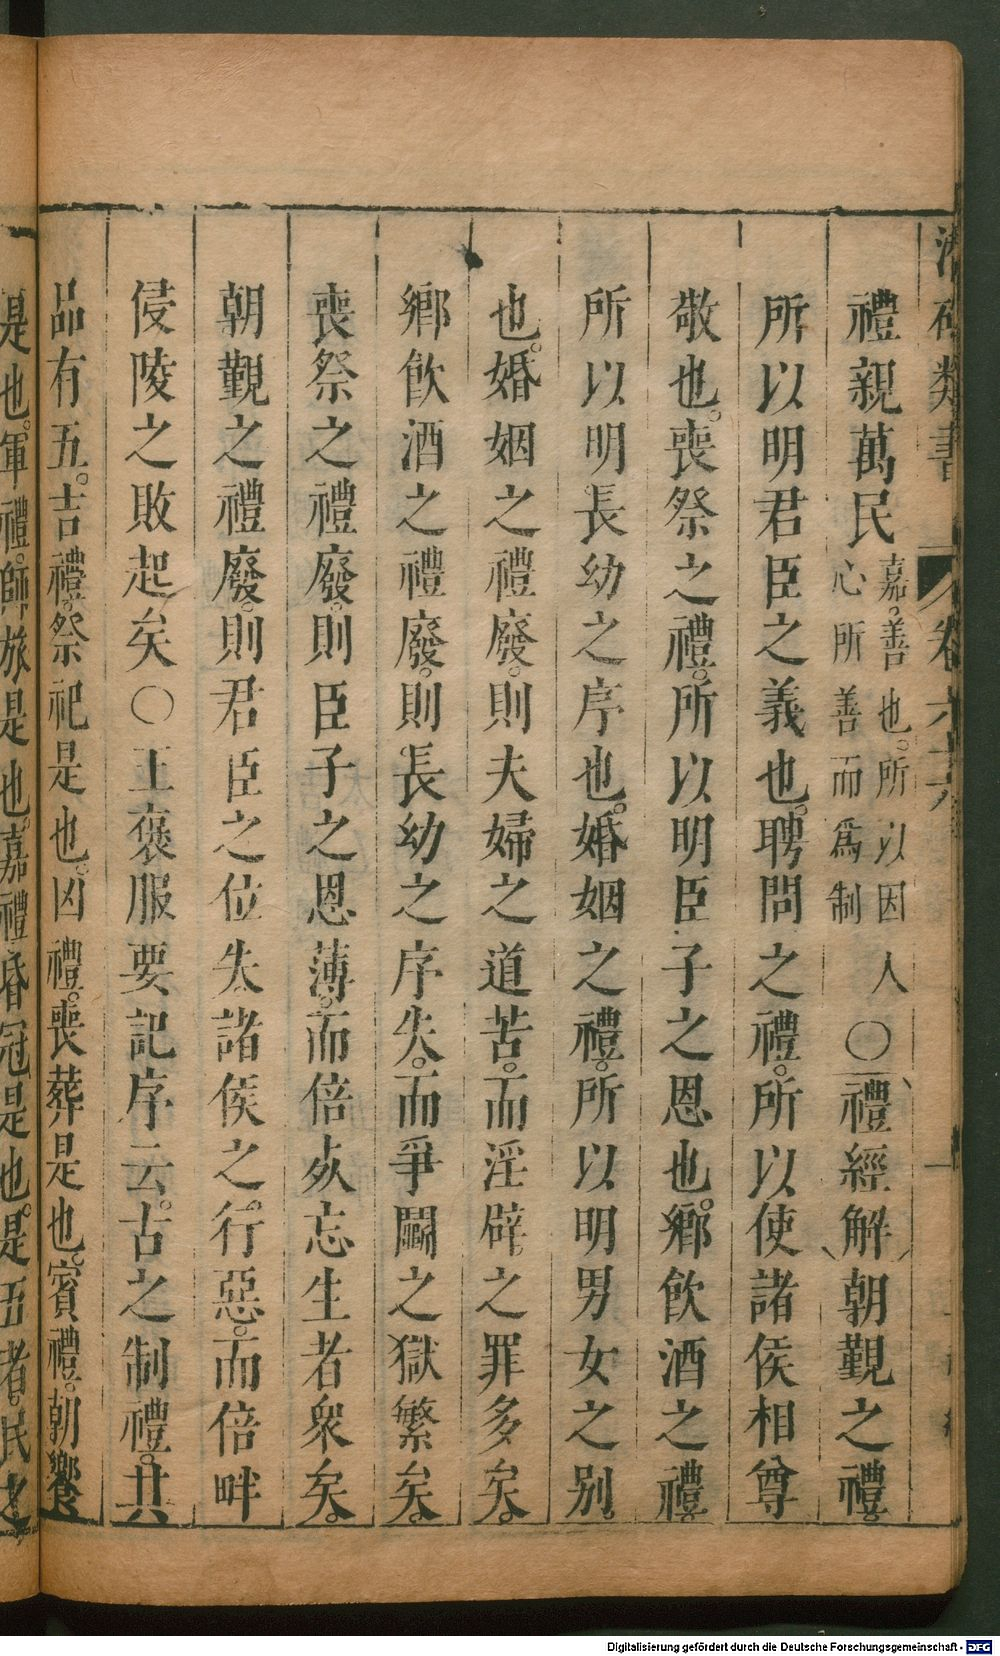 潛確類書 卷六十六
禮親萬民嘉。善也。所以因人心所善而爲制〇禮經解朝覲之禮。
所以明君臣之義也。聘問之禮。所以使諸侯相尊
敬也。喪祭之禮。所以明臣子之恩也。鄉飲酒之禮。
所以明長幼之序也。婚姻之禮。所以明男女之別。
也。婚姻之禮廢。則夫婦之道苦。而淫辟之罪多矣。
鄉飲酒之禮廢。則長幼之序失。而爭鬬之獄繁矣。
喪祭之禮廢。則臣子之恩薄。而倍死忘生者衆矣。
朝覲之禮廢。則君臣之位失諸侯之行惡。而倍畔
侵陵之敗起矣〇王褒服要記序云。古之制禮。其
品有五。吉禮。祭祀是也。凶禮。喪葬是也。賓禮。朝饗
是也。軍禮。師旅是也。嘉禮。昏冠是也。是五者。民之
Digitalisierung gefördert durch die Deutsche Forschungsgemeinschaft - DFG